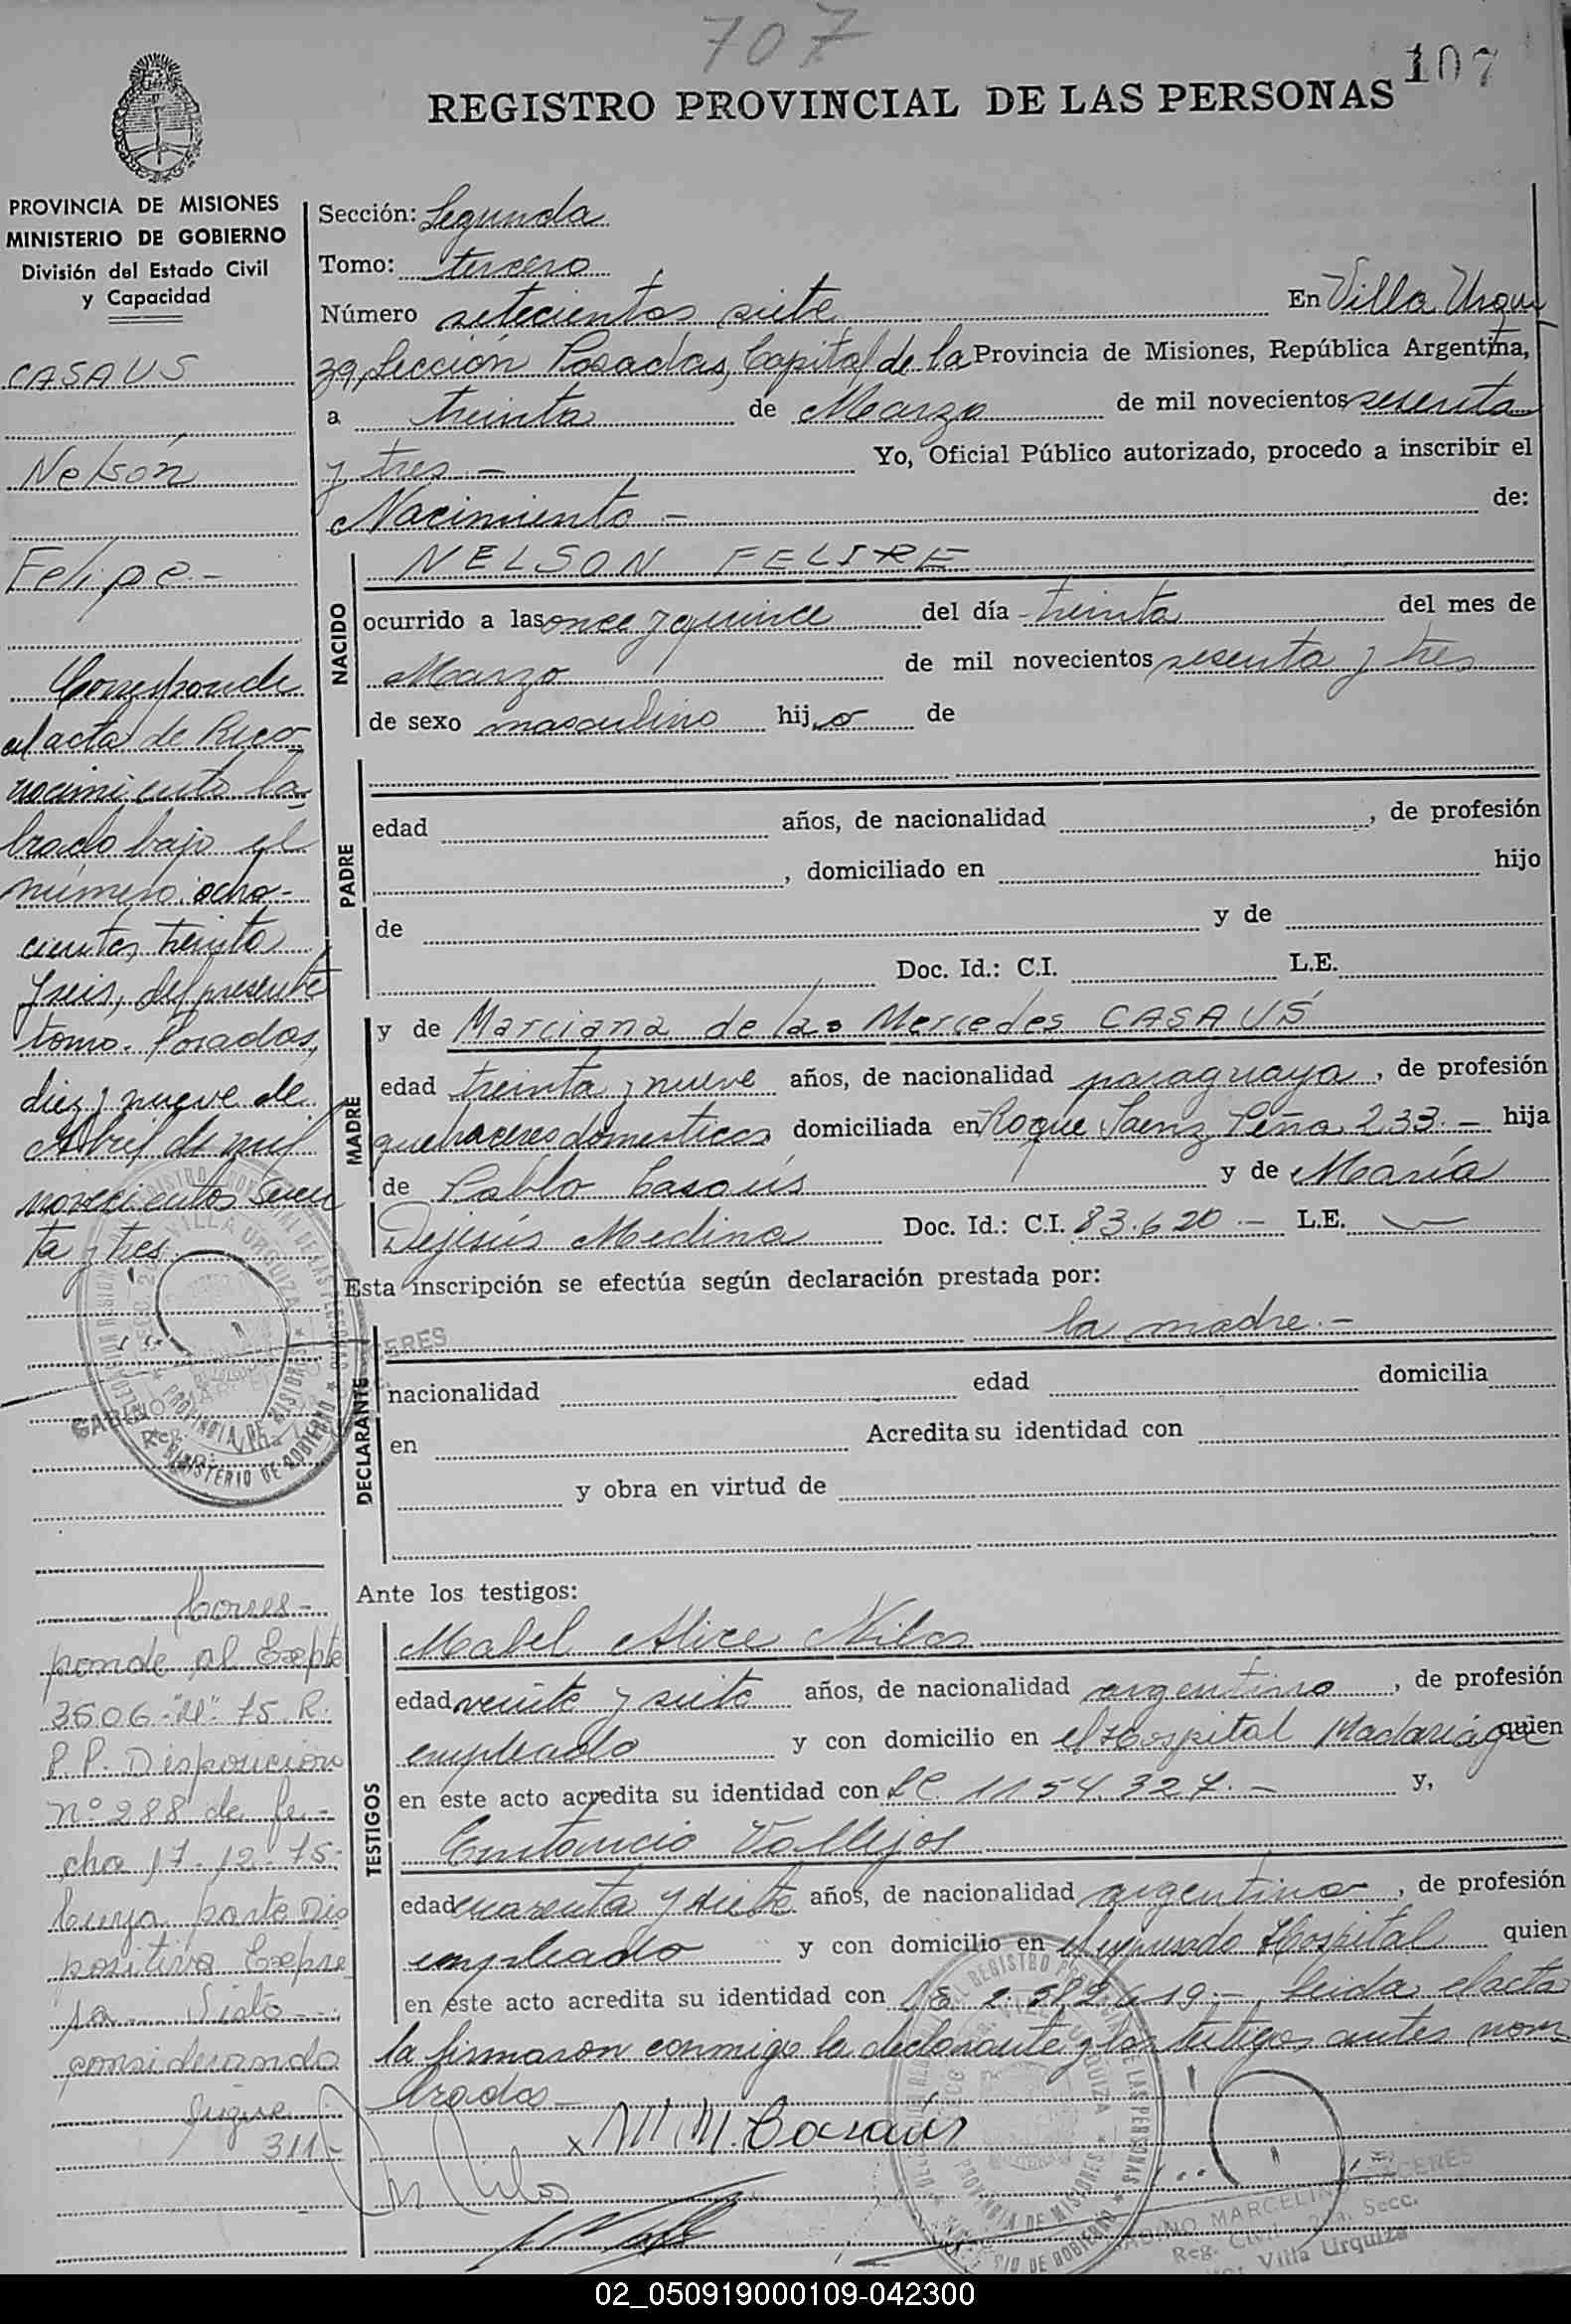 707
107
REGISTRO PROVINCIAL DE LAS PERSONAS
PROVINCIA DE MISIONES
MINISTERIO DE GOBIERNO
División del Estado Civil
y Capacidad
CASAUS
Nelson
Felipe.-
Corresponde
al acta de Reco
nocimiento la-
brado bajo el
número ocho-
cientos treinta
y seis, del presente
tomo. Posadas,
diez y nueve de
Abril de mil
novecientos seten
ta y tres.
Corres-
ponde al Expte
3506-"U"-75 R.
P.P. Disposición
nº 288 de fe-
cha 17-12-75-
cuya parte Dis
positiva Expre
sa Visto
considerando
Sigue
311-
Sección: Segunda
Tomo: tercero
Número setecientos siete En Villa Urqui
za, Sección Posadas, Capital de la Provincia de Misiones, República Argentina,
a treinta de Marzo de mil novecientos sesenta
y tres.- Yo, Oficial Público autorizado, procedo a inscribir el
Nacimiento - de:
NACIDO
NELSON FELIPE
ocurrido a las once y quince del día treinta del mes de
Marzo de mil novecientos sesenta y tres
de sexo masculino hijo de
PADRE
edad años, de nacionalidad , de profesión
, domiciliado en hijo
de y de
Doc. Id.: C.I. L.E.
MADRE
y de Marciana de las Mercedes CASAUS
edad treinta y nueve años, de nacionalidad paraguaya, de profesión
quehaceres domesticos domiciliada en Roque Saenz Peña 233.- hija
de Pablo Casaús y de María
Dejesús Medina Doc. Id.: C.I. 83.620.- L.E. —
Esta inscripción se efectúa según declaración prestada por:
DECLARANTE
la madre.-
nacionalidad edad domicilia
en Acredita su identidad con
y obra en virtud de
Ante los testigos:
TESTIGOS
Mabel Alice Nilos
edad veinte y siete años, de nacionalidad argentina, de profesión
empleada y con domicilio en el Hospital Madariaga quien
en este acto acredita su identidad con LC. 1154.327.- y,
Constancio Vallejos
edad cuarenta y siete años, de nacionalidad argentino, de profesión
empleado y con domicilio en el expresado Hospital quien
en este acto acredita su identidad con LE 2.582.619.- Leida el acta
la firmaron conmigo la declarante y los testigos antes nom
brados-
x M. M. Casaús
REGISTRO PROVINCIAL DE LAS PERSONAS
VILLA URQUIZA
PROVINCIA DE MISIONES
MINISTERIO DE GOBIERNO
GABINO MARCELINO CACERES
Reg. Civil - 2da. Secc.
Villa Urquiza
02_050919000109-042300